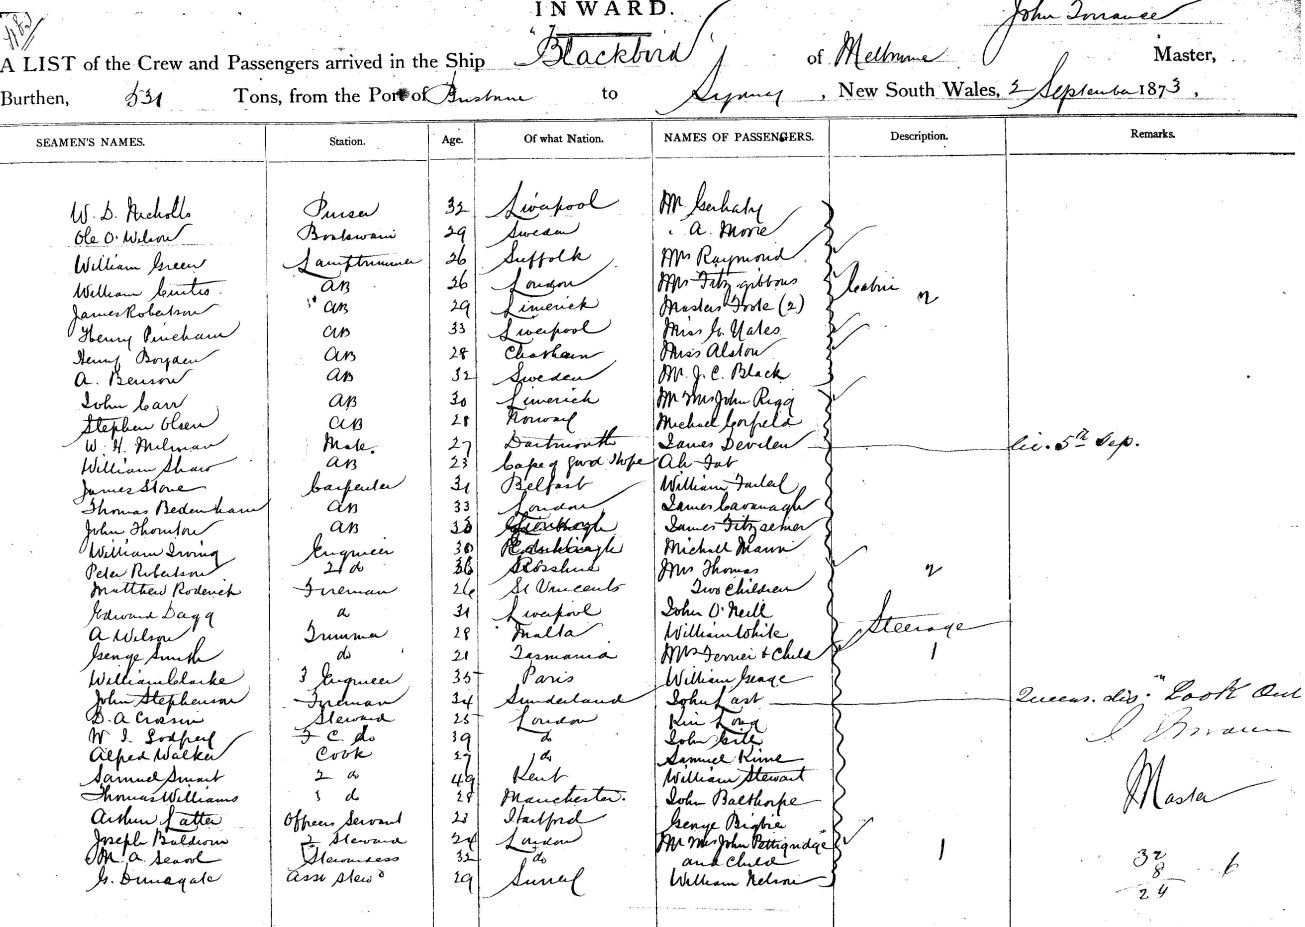 INWARD.
John Torrance
A LIST of the Crew and Passengers arrived in the Ship "Blackbird" of Melbourne Master,
Burthen, 531 Tons, from the Port of Brisbane to Sydney, New South Wales, 2 September 1873,
SEAMEN'S NAMES. Station. Age. Of what Nation. NAMES OF PASSENGERS. Description. Remarks.
W. D. Nicholls Purser 32 Liverpool Mr
Ole O. Wilson Boatswain 29 Sweden " A. Moore
William Green Lamptrimmer 26 Suffolk Mrs Raymond
William Curtis AB 26 London Mrs Fitzgibbons Cabin
James Robertson " AB 29 Limerick Masters Foote (2) 2
Henry Pincham AB 33 Liverpool Miss G. Yates
Henry Boyden AB 28 Chatham Miss Alston
A. Benson AB 32 Sweden Mr. J. C. Black
John Carr AB 30 Limerick Mr Mrs John Rigg
Stephen Olsen AB 28 Norway Michael Corfield
W. H. Milman Mate. 27 Dartmouth James Devilen liv. 5th Sep.
William Shaw AB 23 Cape of Good Hope Ah Fat
James Stone Carpenter 31 Belfast William
Thomas Bedenham AB 33 London James Cavanagh
John Thornton AB James
William Irving Engineer 30 Edinburgh Michall Mann
Peter Robertson 2 do Mrs Thomas 2
Matthew Roderick Fireman 26 St Vincents Two Children
Edward Dagg d 31 Liverpool John O'Neill
A Wilson Trimmer 28 Malta William White Steerage
George Smith do 21 Tasmania Mrs Ferrier & Child 1
William Clarke 3 Engineer 35 Paris William George
John Stephenson Fireman 34 Sunderland John Last "Look Out
D. A Steward 25 London Kin Long
W. J. Godfrey F C. do 39 do John Gill
Alfred Walker Cook 27 do Samuel Kime
Samuel Smart 2 d 49 Kent William Stewart Master
Thomas Williams 3 d 28 Manchester. John Balthorpe
Arthur Latter Officers Servant 23 Hartford George
Joseph Baldwin 2 Steward 24 London Mr Mrs John Pettigridge
M. A. Stewardess 32 do and Child 1 32
8 6
G. Dunagate Asst Stewd 29 Surrey William Nelson 24